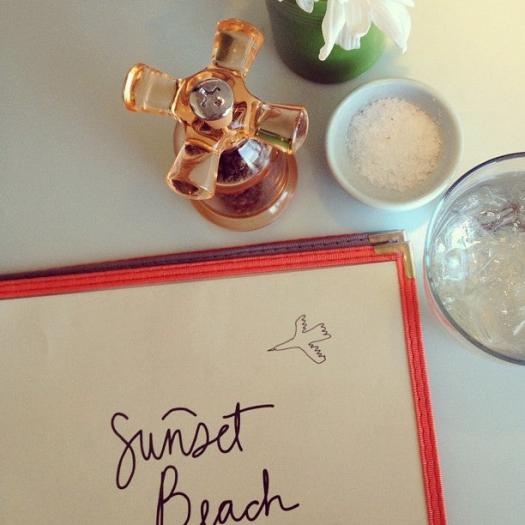 Sunset
Beach